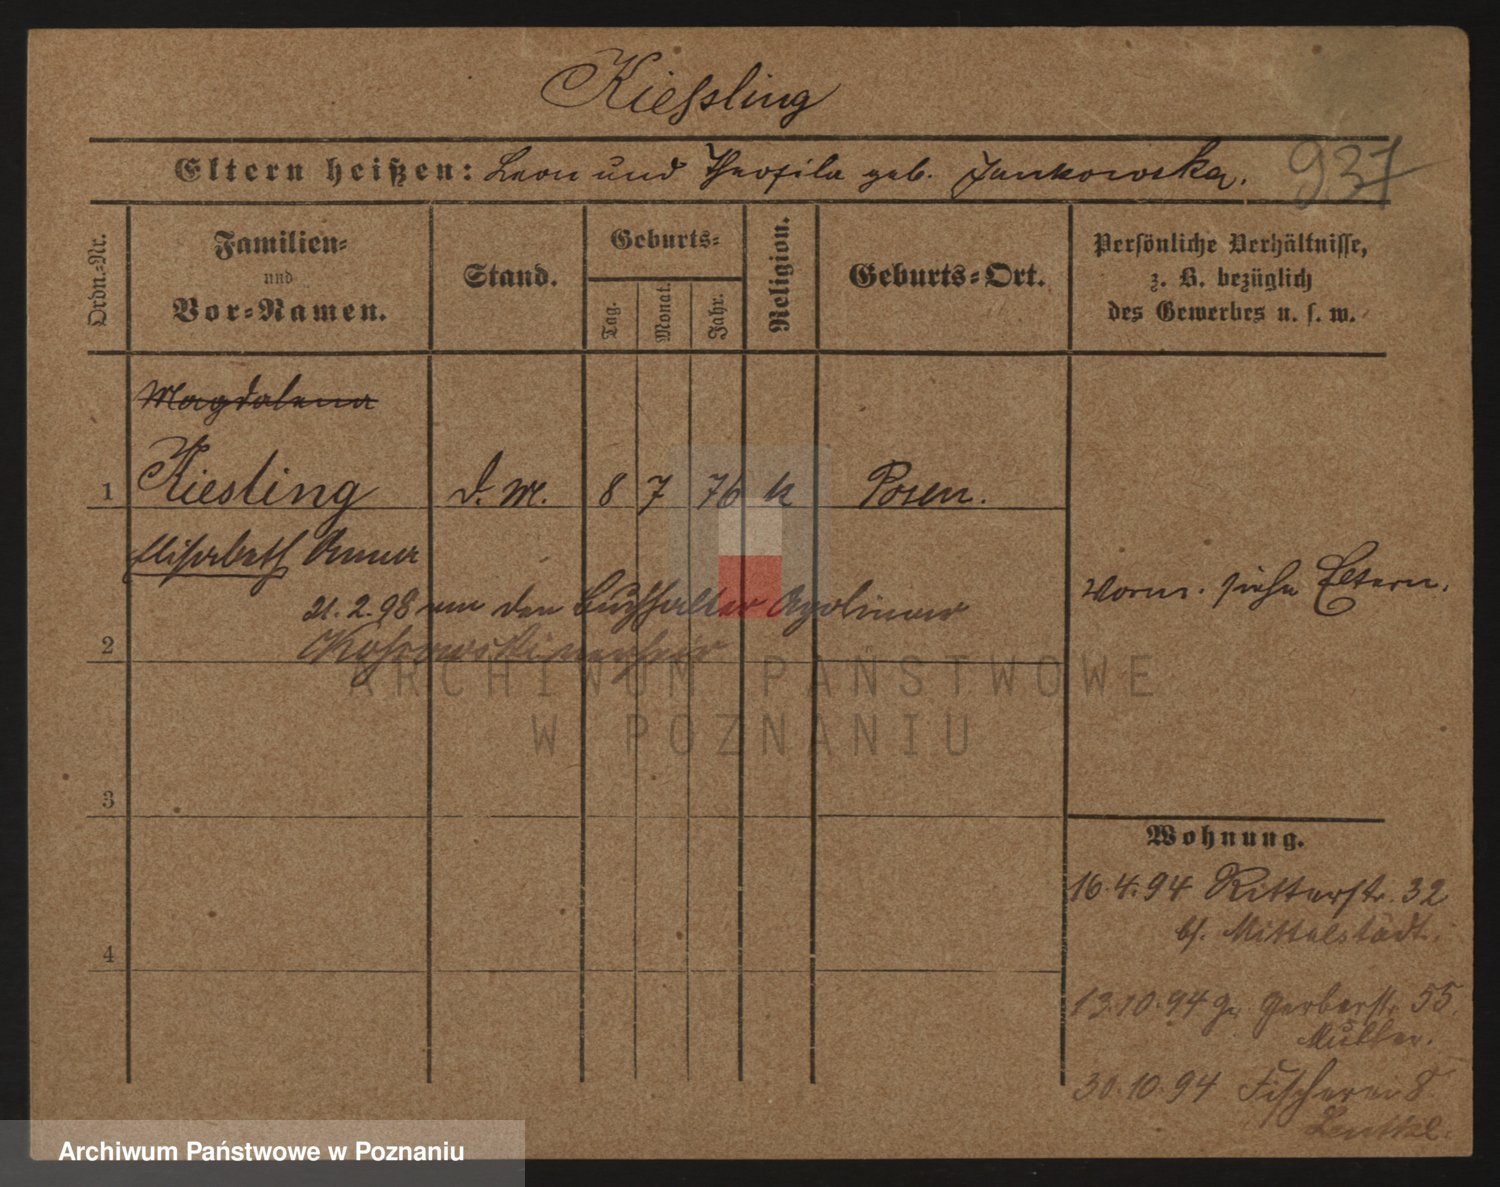 Kießling
Eltern heißen: Leon und Theofila geb. Jankowska.
937
Ordn.-Nr.
Familien-
und
Vor-Namen.
Stand.
Geburts-
Tag.
Monat.
Jahr.
Religion.
Geburts-Ort.
Persönliche Verhältnisse,
z. B. bezüglich
des Gewerbes u. s. w.
Magdalena
1 Kiesling d. M. 8 7 76 k Posen.
Elisabeth Anna
Vorm. siehe Eltern.
21.2.98 an den Buchhalter Apolinar
2
3
4
Wohnung.
16.4.94 Ritterstr. 32
bf. Mittelstädt.
13.10.94 Gr. Gerberstr. 55.
Müller.
30.10.94 Fischerei 8
ARCHIWUM PAŃSTWOWE
W POZNANIU
Archiwum Państwowe w Poznaniu